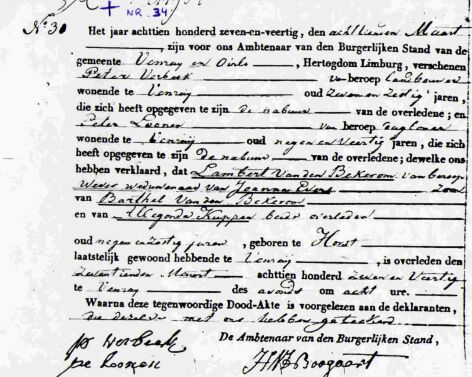 + NR. 34
No. 30 Het jaar achttien honderd zeven-en-veertig, den achttienden Maart
, zijn voor ons Ambtenaar van den Burgerlijken Stand van de
gemeente Venray en Oirlo, Hertogdom Limburg, verschenen
Peter Verbeek van beroep landbouwer
wonende te Venray oud zeven en zestig jaren,
die zich heeft opgegeven te zijn de nabuur van de overledene; en
Peter Loonen van beroep daglooner
wonende te Venraij oud negen en veertig jaren, die zich
heeft opgegeven te zijn de nabuur van de overledene; dewelke ons
hebben verklaard, dat Lambert Van den Bekerom van beroep
Wever weduwenaar van Joanna Evers Zoon
van Barthel Van den Bekerom
en van Allegonda Kuppen beide overleden
oud negen zestig jaren, geboren te Horst
laatstelijk gewoond hebbende te Venraij, is overleden den
Maart achttien honderd zeven en Veertig
te Venray des avonds om acht ure.
Waarna deze tegenwoordige Dood-Akte is voorgelezen aan de deklaranten,
die dezelve met ons hebben geteekend
De Ambtenaar van den Burgerlijken Stand,
p verbeek
pe loonen
Boogaart